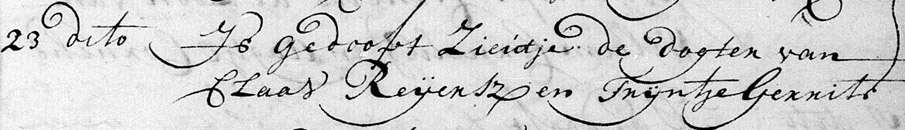 23 dito Is gedoopt Zieidje de dogter van
Claas Reÿersz en Trÿntje Gerrits